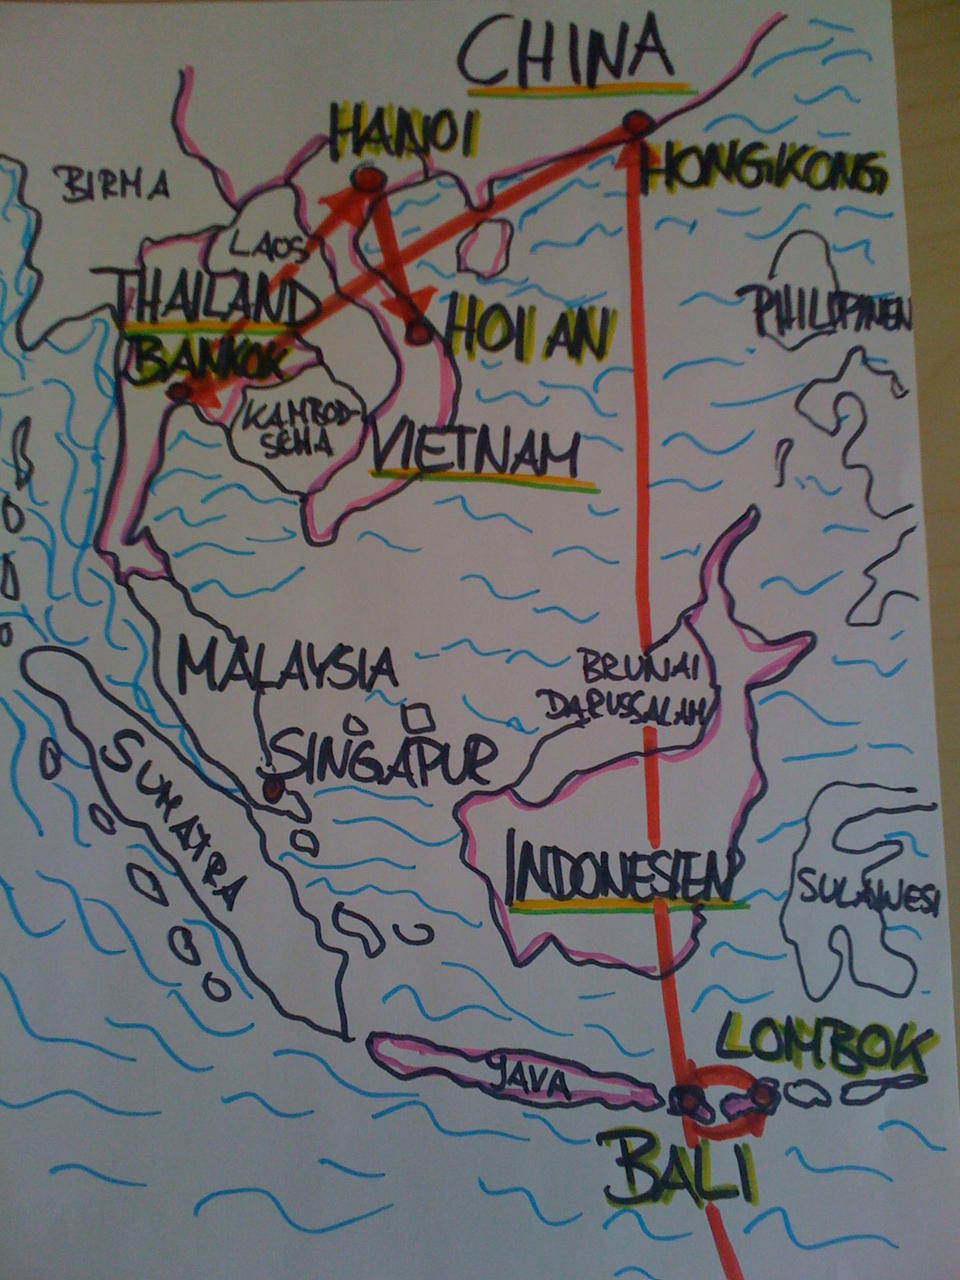 CHINA
HANOI
HONGKONG
BIRMA
LAOS
THAILAND
PHILIPPINEN
HOI AN
BANKOK
KAMBOD-
SCHA
VIETNAM
MALAYSIA
BRUNAI
DARUSSALAM
SINGAPUR
SUMATRA
INDONESIEN
SULAWESI
LOMBOK
JAVA
BALI